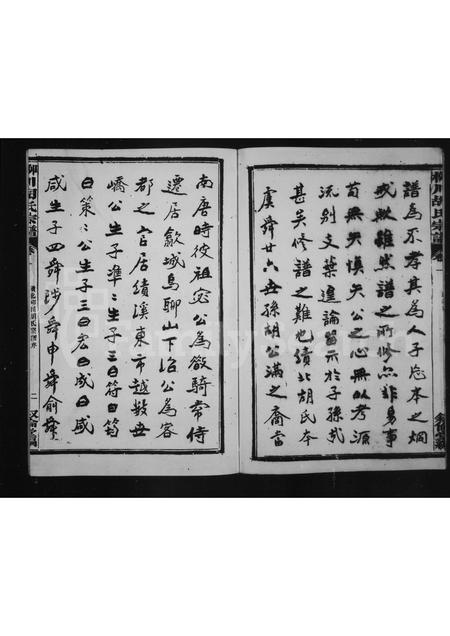 譜為不孝其為人子忘本之烱
戒歟雖然譜之所修亦非易事
苟無天慎天公之心無以考源
流別支葉遑論
示於子孫哉
甚矣修譜之難也績北胡氏本
虞舜廿六世孫胡公滿之裔當
南唐時彼祖宓公為散騎常侍
遷居歙城烏聊山下治公為客
都之官居績溪東市越數世
嶠公生子準準生子三曰符曰筠
曰策策公生子三曰宏曰成曰咸
咸生子四舜陟舜申舜俞舜
柳川胡氏宗譜
卷一
二
敘倫堂